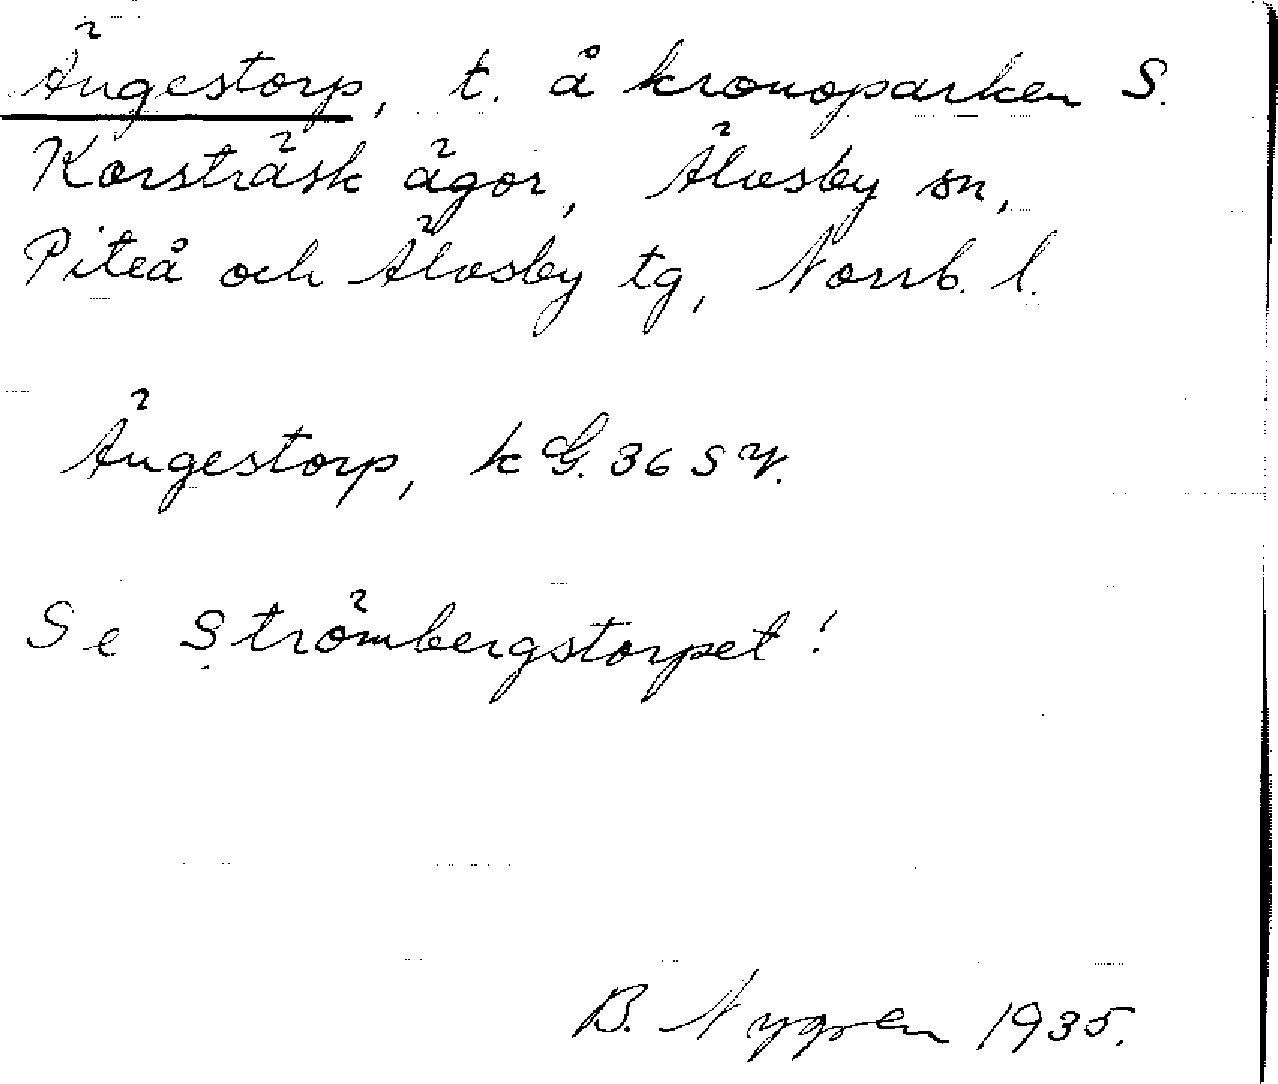 Ängestorp, t. å kronoparken S.
Korsträsk ägor, Älvsby sn,
Piteå och Älvsby tg, Norrb. l.
Ängestorp, k G. 36 S V.
Se Strömbergstorpet!
B. Nygren 1935.